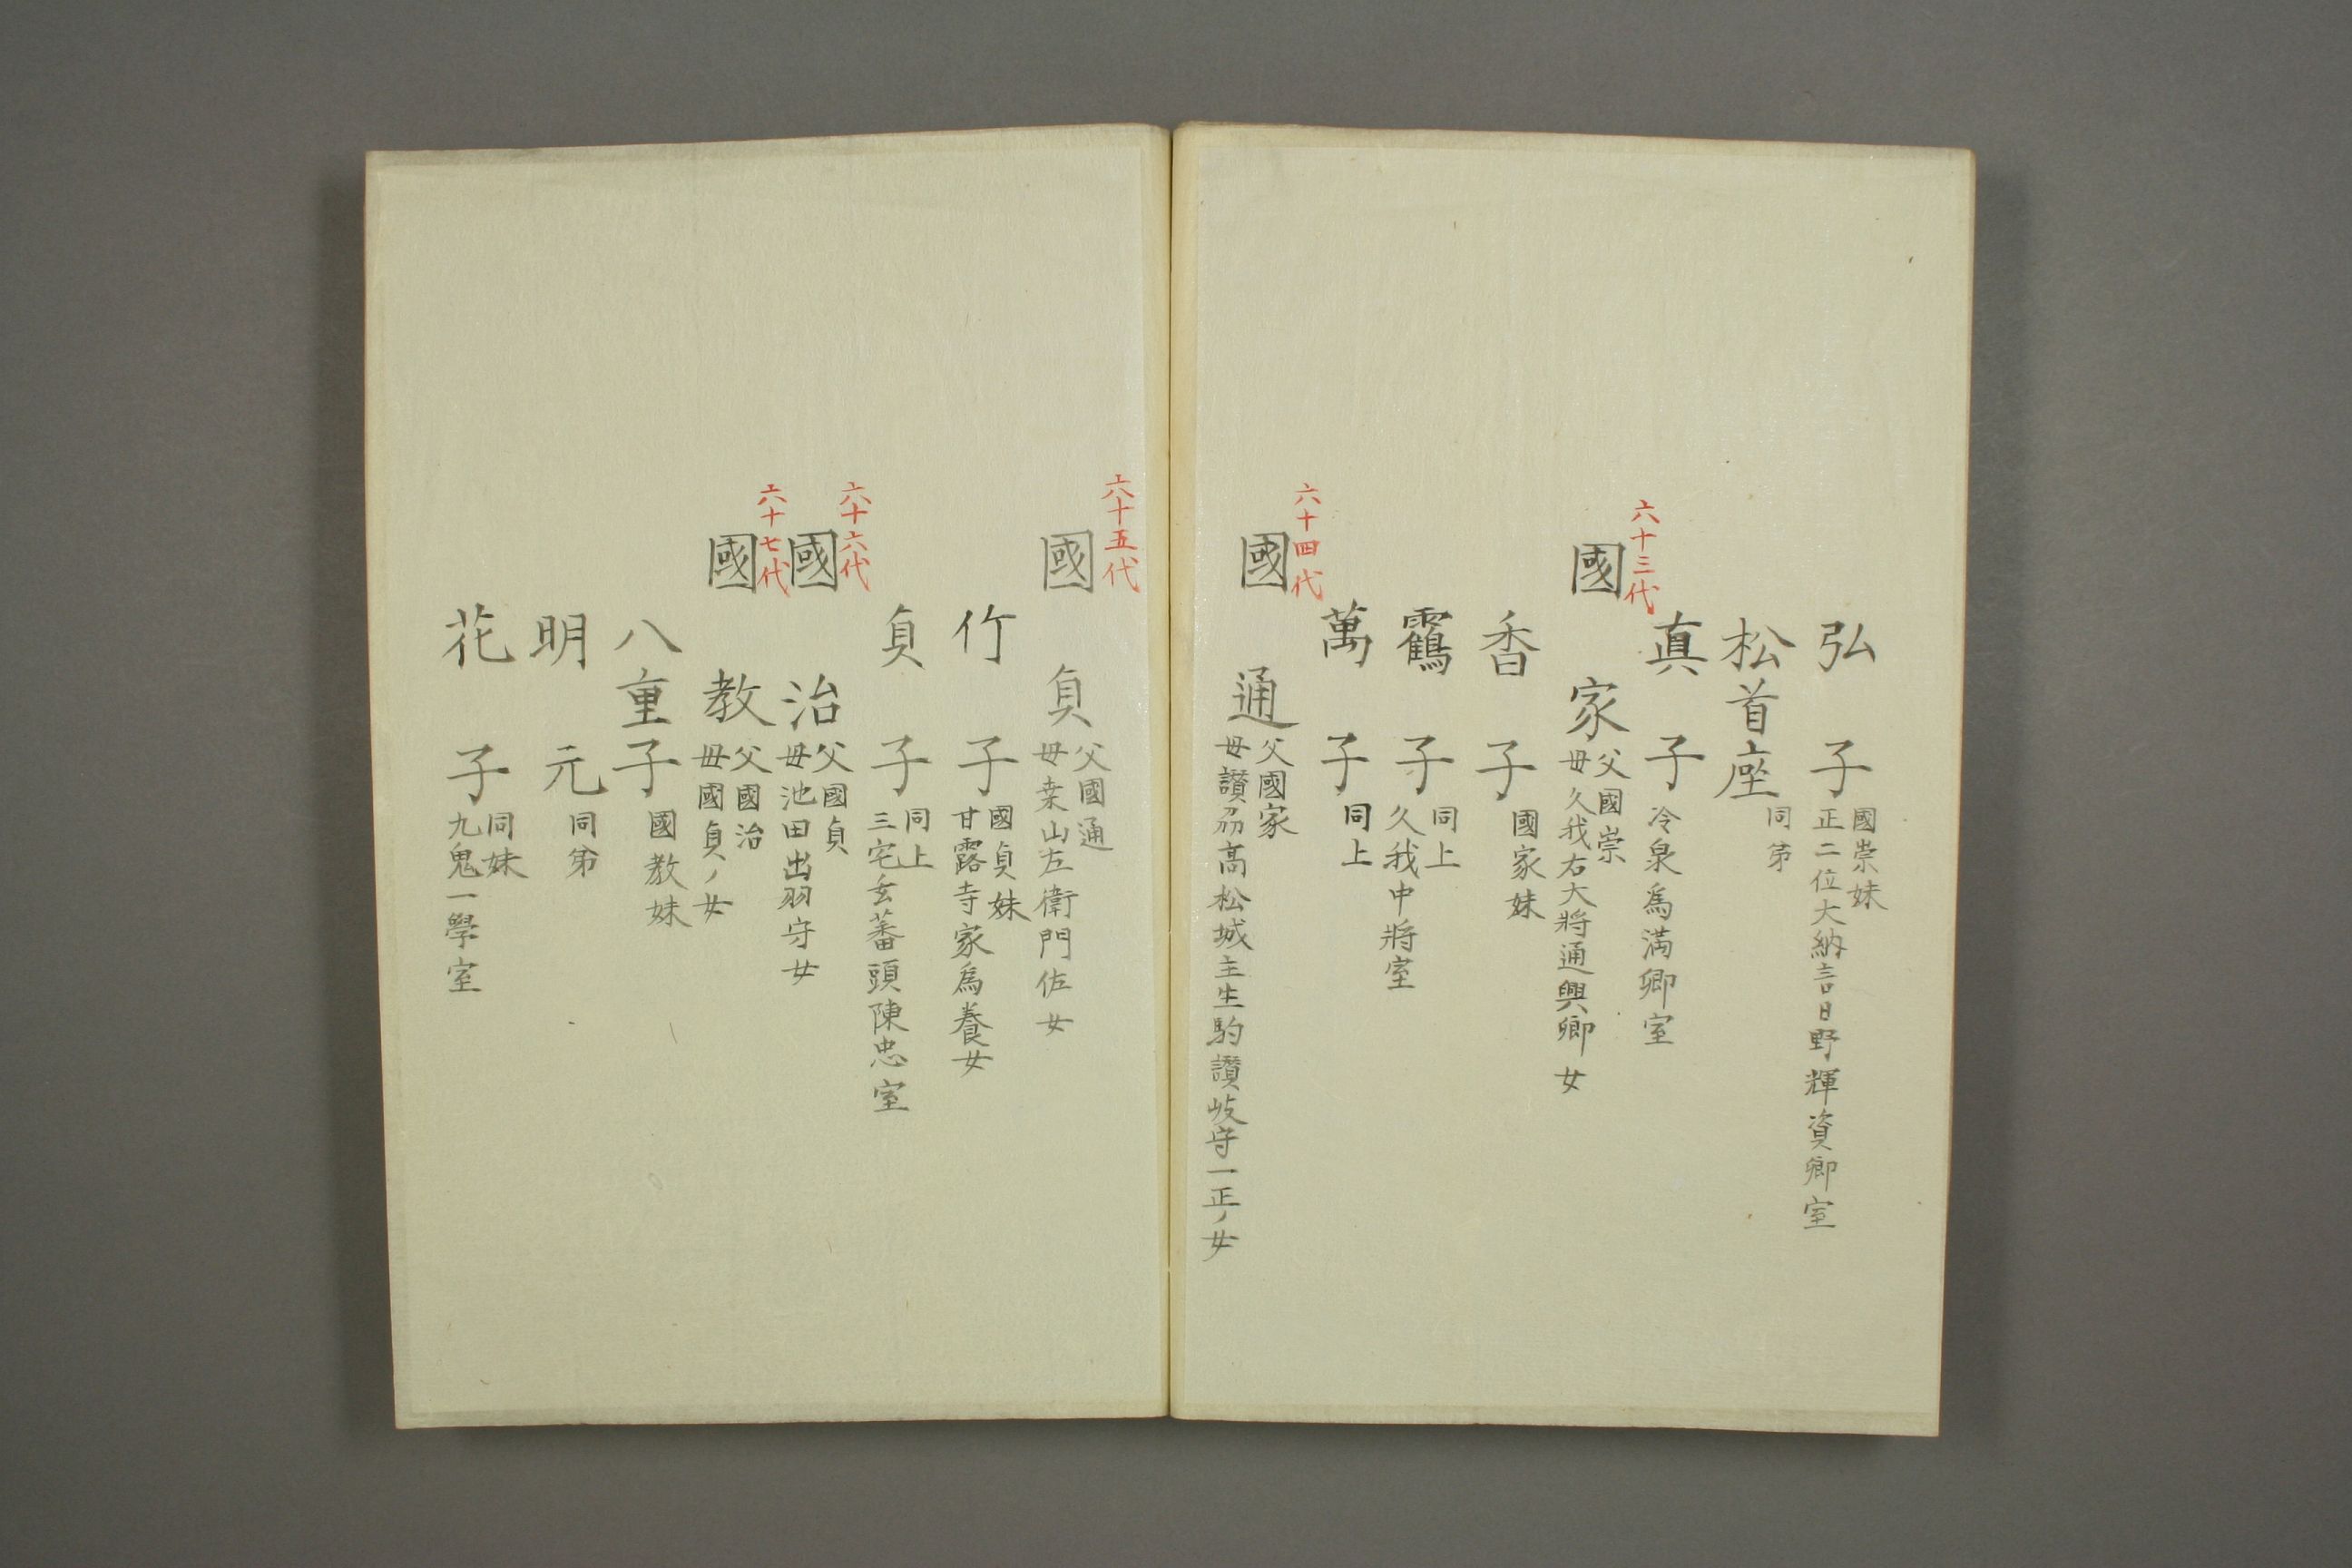 弘子
國崇妹
正二位大納言日野輝資卿室
松首座
同弟
真子
冷泉爲満卿室
六十三代
國家
父國崇
母久我右大將通興卿女
香子
國家妹
靏子
同上
久我中將室
萬子
同上
六十四代
國通
父國家
母讃刕高松城主生駒讃岐守一正ノ女
六十五代
國貞
父國通
母桒山左衛門佐女
竹子
國貞妹
甘露寺家爲養女
貞子
同上
三宅玄蕃頭陳忠室
六十六代
國治
父國貞
母池田出羽守女
六十七代
國教
父國治
母國貞ノ女
八重子
國教妹
明元
同弟
花子
同妹
九鬼一學室